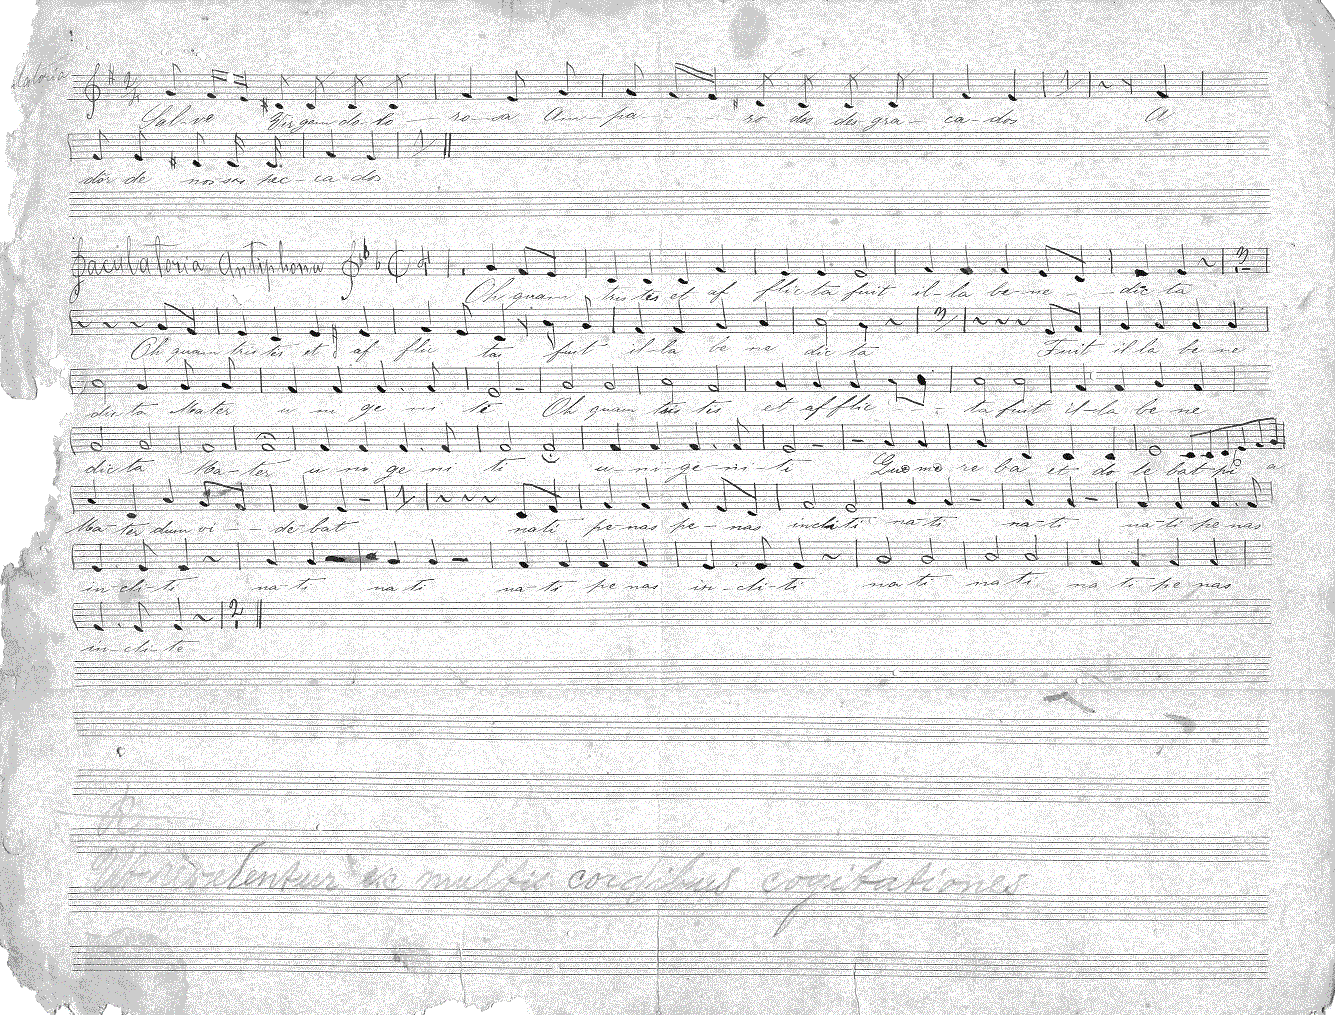 Sal-ve Virgem do-lo - ro-sa Am-pa - - - ro dos des gra - ca-dos A
dor de nos-sos pec-ca dos
Jaculatoria Antiphona Oh quam tristes et af flicta fuit il-la be-ne - - dic ta
Oh quam tristes et af flic tas fuit il-la be ne dic ta Fuit il-la be ne
dicta Mater u ni ge ni ti Oh quam tris tis et afflic - - - ta fuit il-la be ne
dicta Ma-ter u-ni ge ni ti u-ni-ge-ni-ti Quæ mo re ba et do le bat pi a
Ma-ter dum vi - - de-bat nati penas pe-nas incliti na-ti na-ti na-ti penas
in-cli-ti na-ti na ti na-ti pe nas in-cli-ti na ti na ti na ti pe nas
in-cli-te
Ut revelentur ex multis cordibus cogitationes